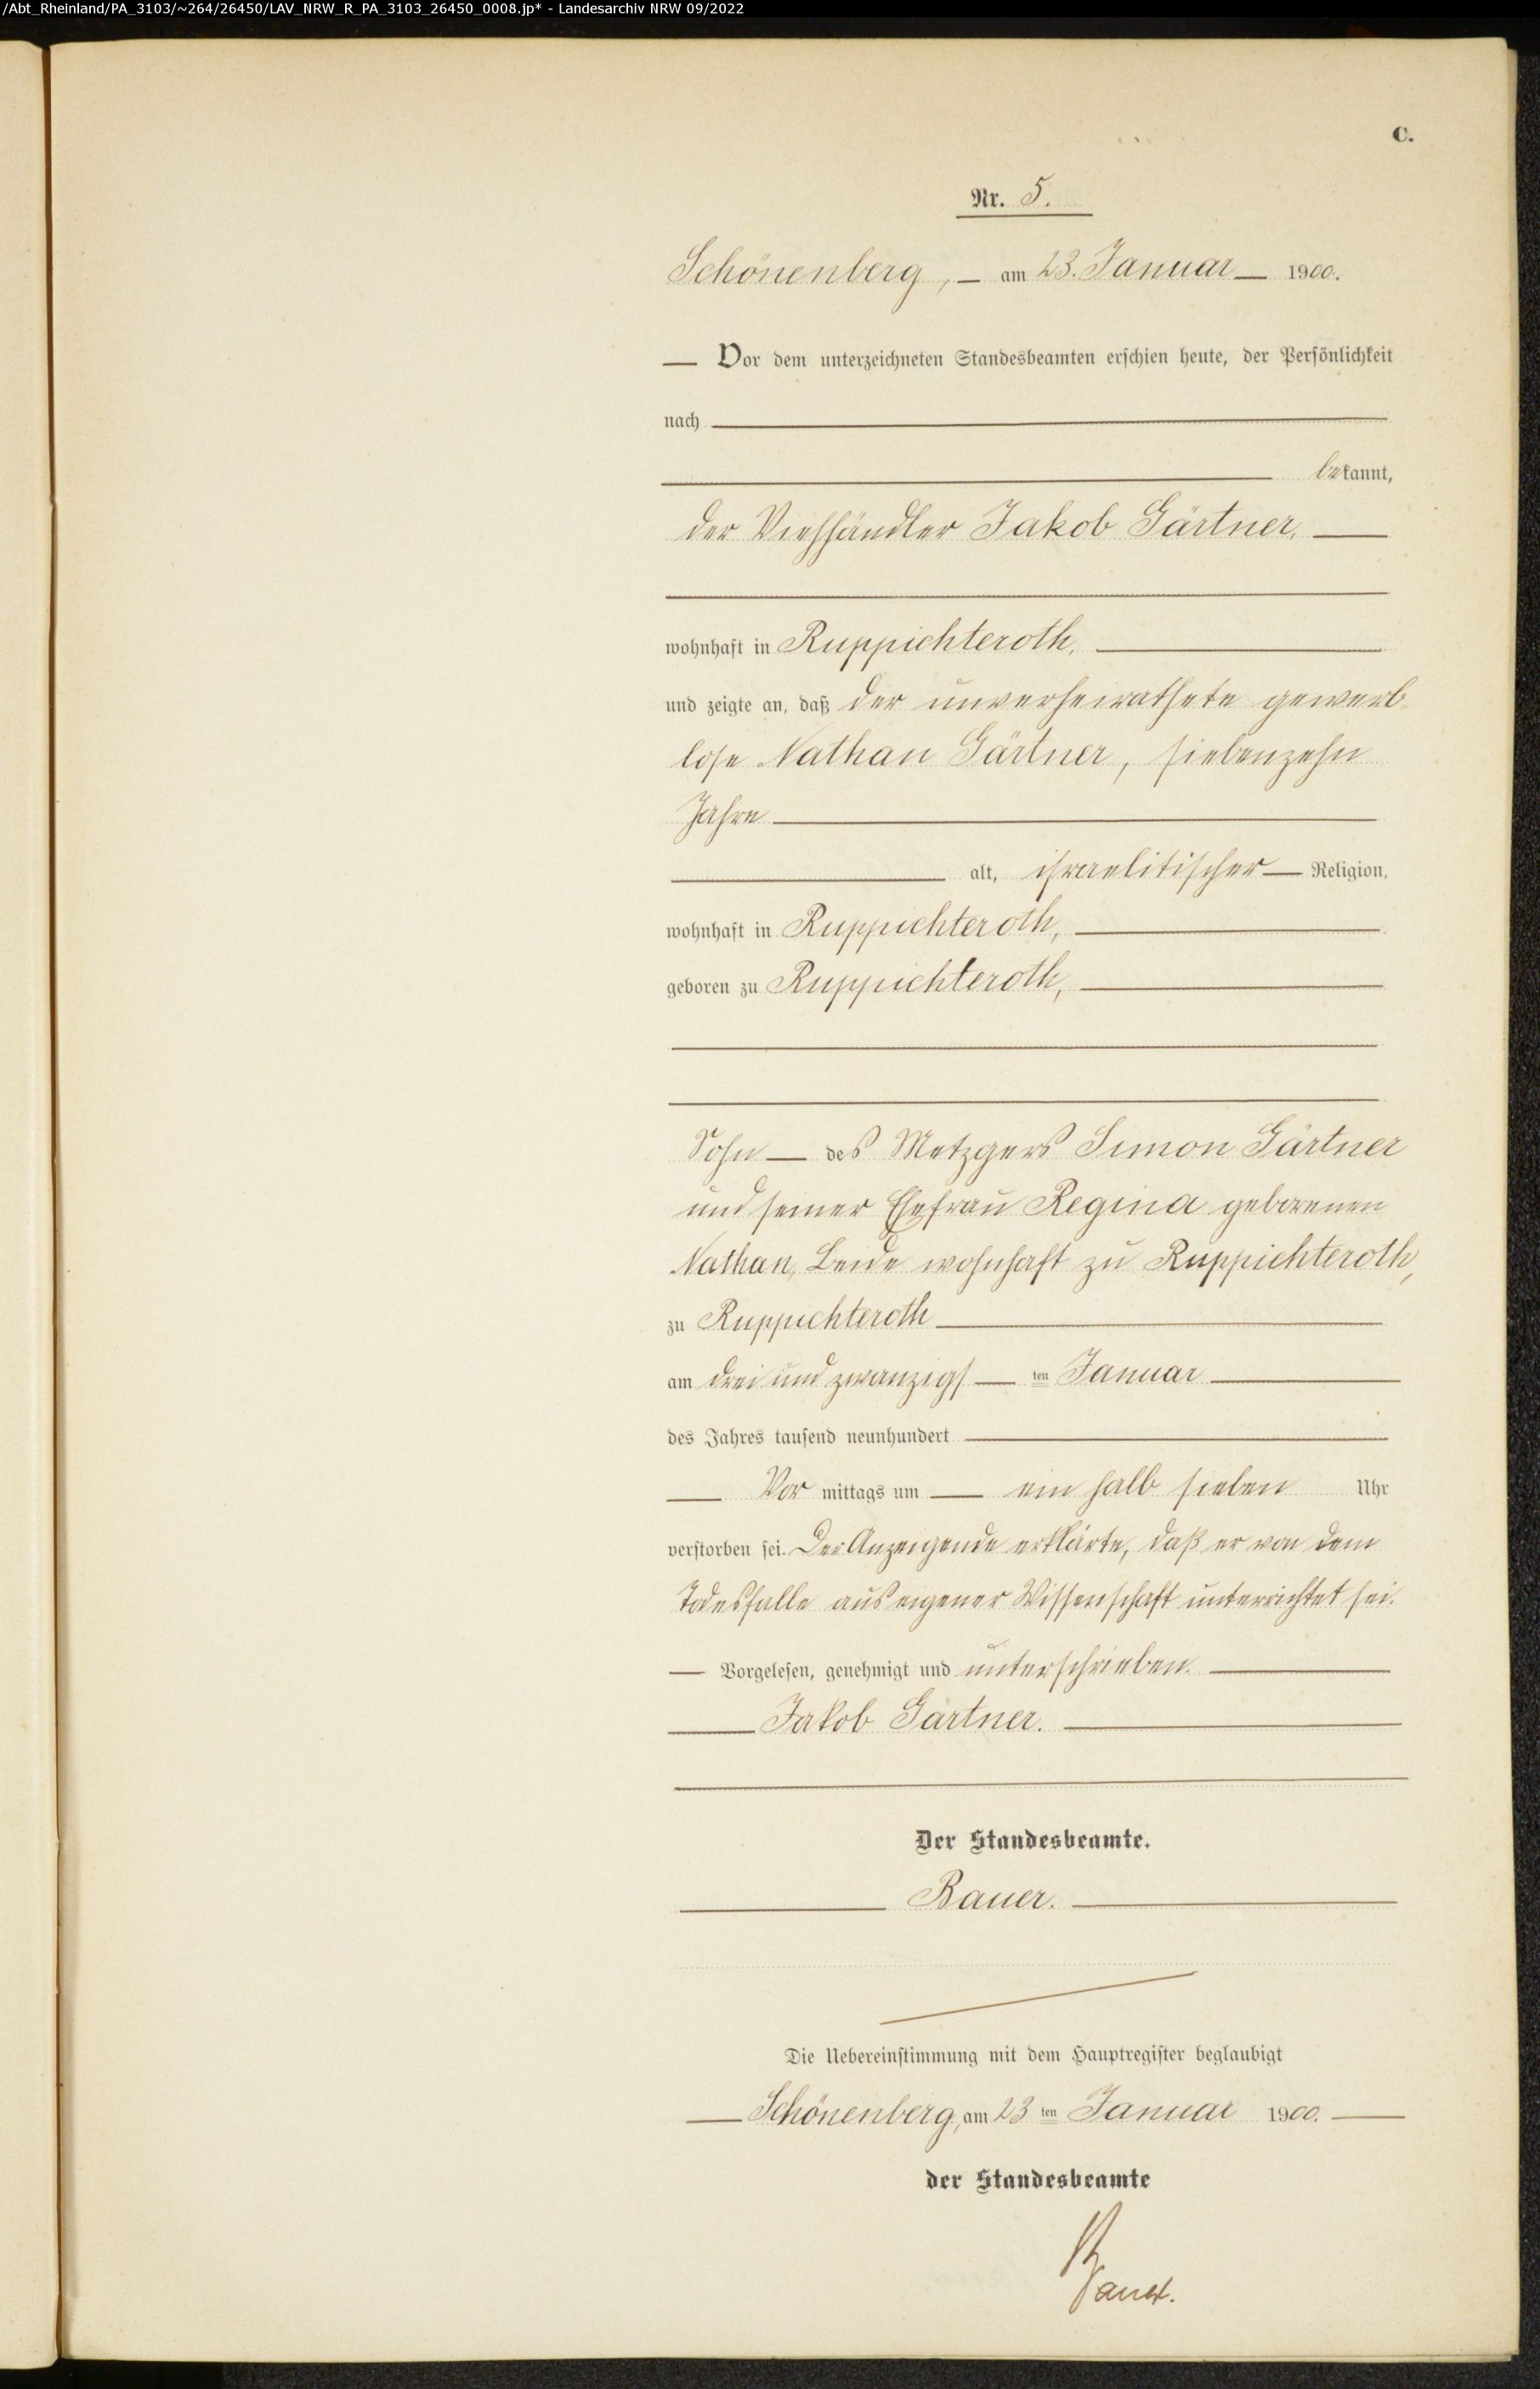 /Abt_Rheinland/PA_3103/~264/26450/LAV_NRW_R_PA_3103_26450_0008.jp* - Landesarchiv NRW 09/2022
C.
Nr. 5.
Schönenberg, — am 23. Januar — 1900.
— Vor dem unterzeichneten Standesbeamten erschien heute, der Persönlichkeit
nach
bekannt,
der Viehhändler Jakob Gärtner,
wohnhaft in Ruppichteroth,
und zeigte an, daß der unverheirathete gewerb-
lose Nathan Gärtner, siebenzehn
Jahre
alt, israelitischer — Religion,
wohnhaft in Ruppichteroth,
geboren zu Ruppichteroth,
Sohn — des Metzgers Simon Gärtner
und seiner Ehefrau Regina geborenen
Nathan, Beide wohnhaft zu Ruppichteroth,
zu Ruppichteroth
am drei und zwanzigs — ten Januar
des Jahres tausend neunhundert
Vor mittags um — ein halb sieben Uhr
verstorben sei. Der Anzeigende erklärte, daß er von dem
Todesfalle aus eigener Wissenschaft unterrichtet sei.
— Vorgelesen, genehmigt und unterschrieben.
Jakob Gärtner.
Der Standesbeamte.
Bauer.
Die Uebereinstimmung mit dem Hauptregister beglaubigt
Schönenberg, am 23 ten Januar 1900.
der Standesbeamte
Bauer.